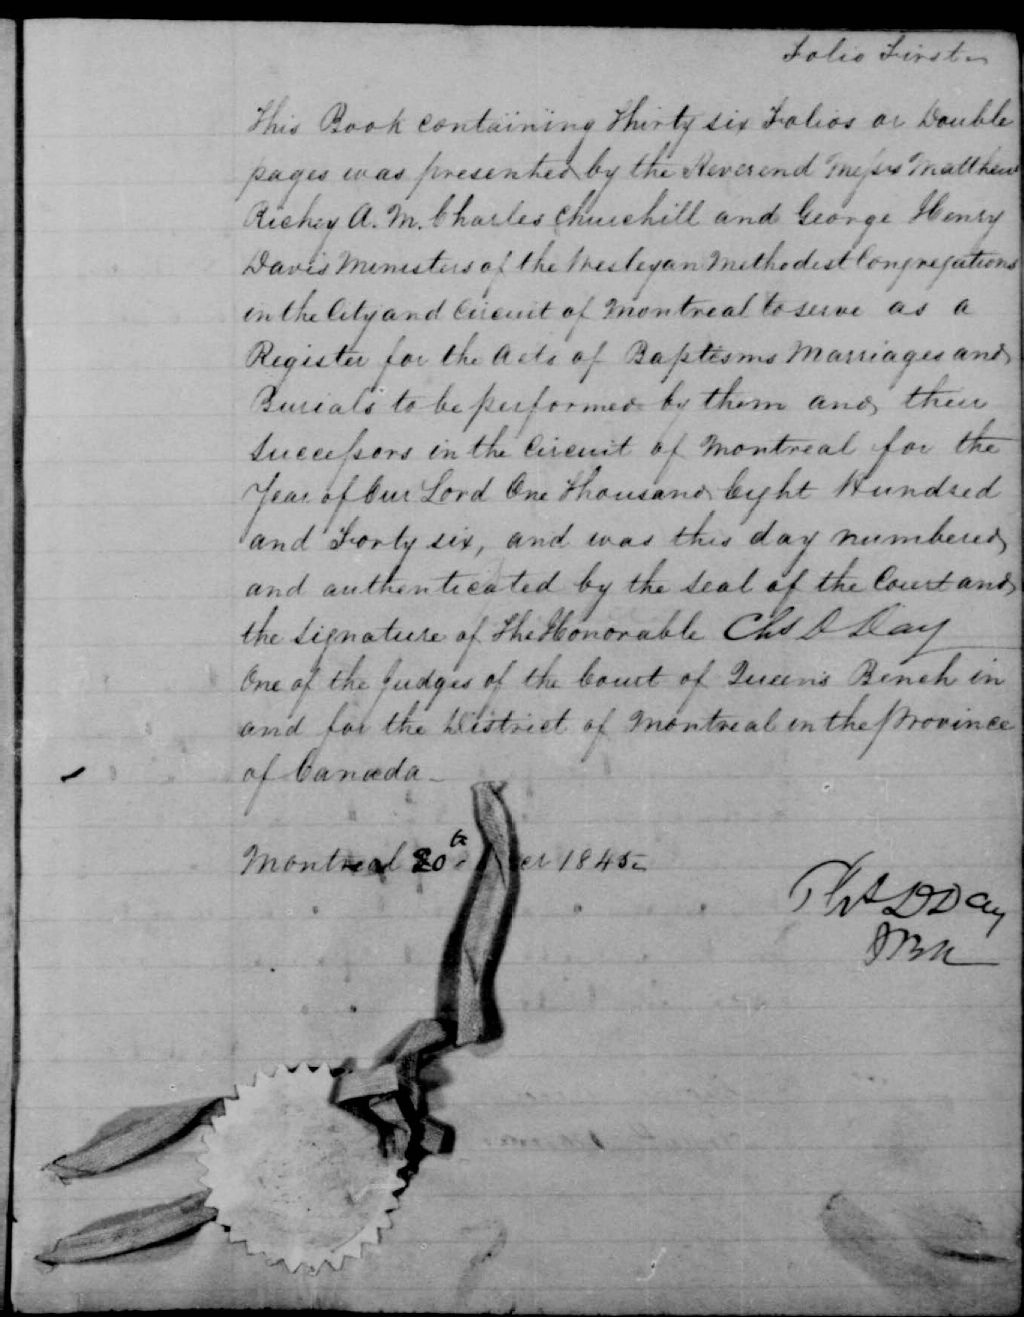 Folio First
This Book containing Thirty six Folios or Double
pages was presented by the Reverend Messrs Matthew
Richey A. M. Charles Churchill and George Henry
Davis Ministers of the Wesleyan Methodist Congregations
in the City and Circuit of Montreal to serve as a
Register for the Acts of Baptisms Marriages and
Burials to be performed by them and their
Successors in the Circuit of Montreal for the
Year of Our Lord One Thousand Eight Hundred
and Forty six, and was this day numbered
and authenticated by the seal of the Court and
the signature of The Honorable Chs D Day
One of the Judges of the Court of Queen's Bench in
and for the District of Montreal in the Province
of Canada
Montreal 1845
Chs D Day